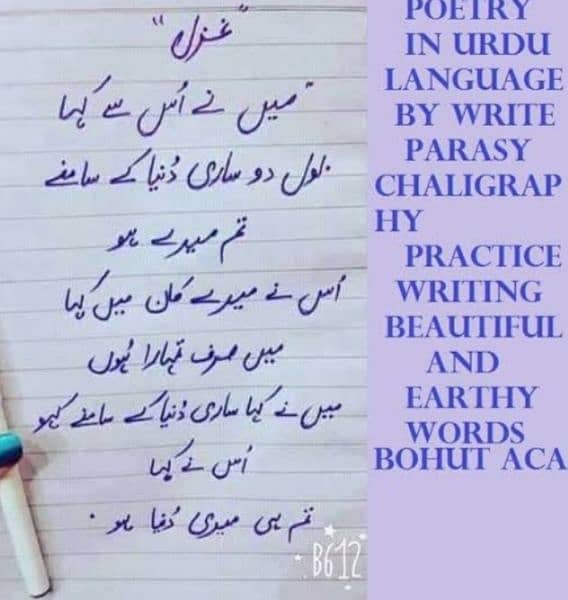 "غزل"
"میں نے اُس سے کہا
بول دو ساری دُنیا کے سامنے
تم میرے ہو
اُس نے میرے کان میں کہا
میں صرف تمہارا ہُوں
میں نے کہا ساری دُنیا کے سامنے کہو
اُس نے کہا
تم ہی میری دُنیا ہو۔
B612
POETRY
IN URDU
LANGUAGE
BY WRITE
PARASY
CHALIGRAP
HY
PRACTICE
WRITING
BEAUTIFUL
AND
EARTHY
WORDS
BOHUT ACA